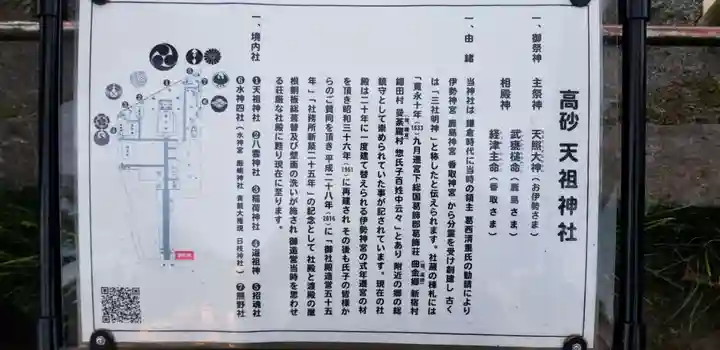 高砂 天祖神社
一、御祭神　主祭神　天照大神（お伊勢さま）
相殿神　武甕槌命（鹿島さま）
経津主命（香取さま）
一、由 緒
当神社は 鎌倉時代に当時の領主 葛西清重氏の勧請により
伊勢神宮 鹿島神宮 香取神宮 から分霊を受け創建し 古く
は「三社明神」と称したと伝えられます。社蔵の棟札には
「寛永十年（1633）九月遷宮下総国葛飾郡葛飾荘 曲金郷 新宿村
細田村 曼荼羅村 惣氏子百姓中云々」とあり 附近の郷の総
鎮守として崇められていた事が記されています。現在の社
殿は二十年に一度建て替えられる伊勢神宮の式年遷宮の材
を頂き昭和三十六年（1961）に再建され その後も氏子の皆様か
らのご賛同を頂き 平成二十八年（2016）に「御社殿造営五十五
年」「社務所新築二十五年」の記念として 社殿と渡殿の屋
根銅板総葺替及び壁画の洗いが施され 御造営当時を思わせ
る荘厳な社殿に甦り現在に至ります。
一、境内社
①天祖神社 ②八雲神社 ③稲荷神社 ④道祖神 ⑤招魂社
⑥水神四社（水神宮 厳嶋神社 日枝神社） ⑦熊野社